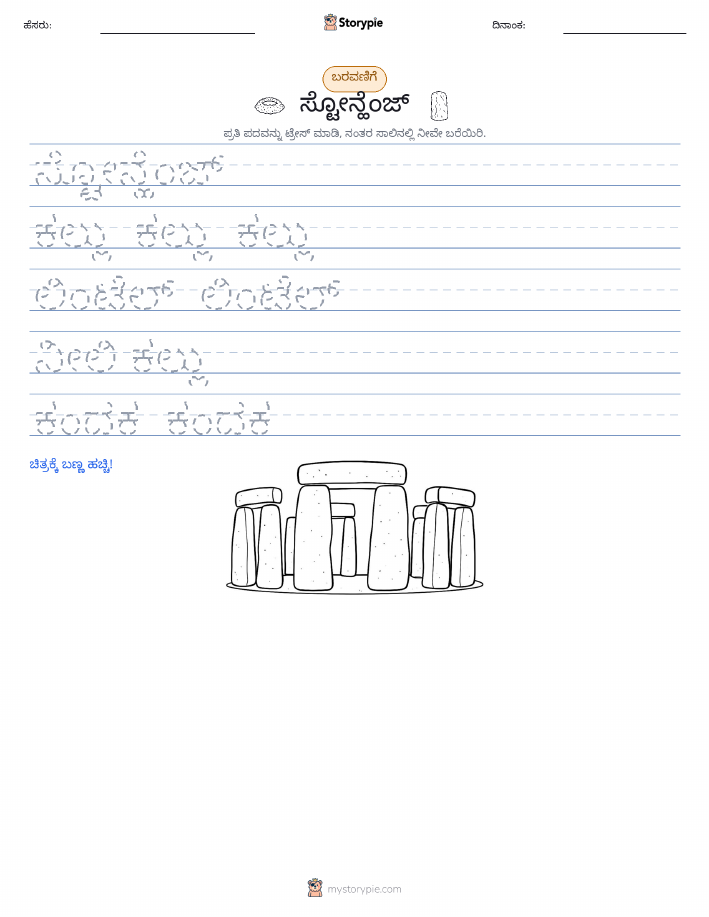 ಹೆಸರು:
Storypie
ದಿನಾಂಕ:
ಬರವಣಿಗೆ
ಸ್ಟೋನ್ಹೆಂಜ್
ಪ್ರತಿ ಪದವನ್ನು ಟ್ರೇಸ್ ಮಾಡಿ, ನಂತರ ಸಾಲಿನಲ್ಲಿ ನೀವೇ ಬರೆಯಿರಿ.
ಸ್ಟೋನ್ಹೆಂಜ್
ಕಲ್ಲು ಕಲ್ಲು ಕಲ್ಲು
ಲಿಂಟೆಲ್ ಲಿಂಟೆಲ್
ನೀಲಿ ಕಲ್ಲು
ಕಂದಕ ಕಂದಕ
ಚಿತ್ರಕ್ಕೆ ಬಣ್ಣ ಹಚ್ಚಿ!
mystorypie.com